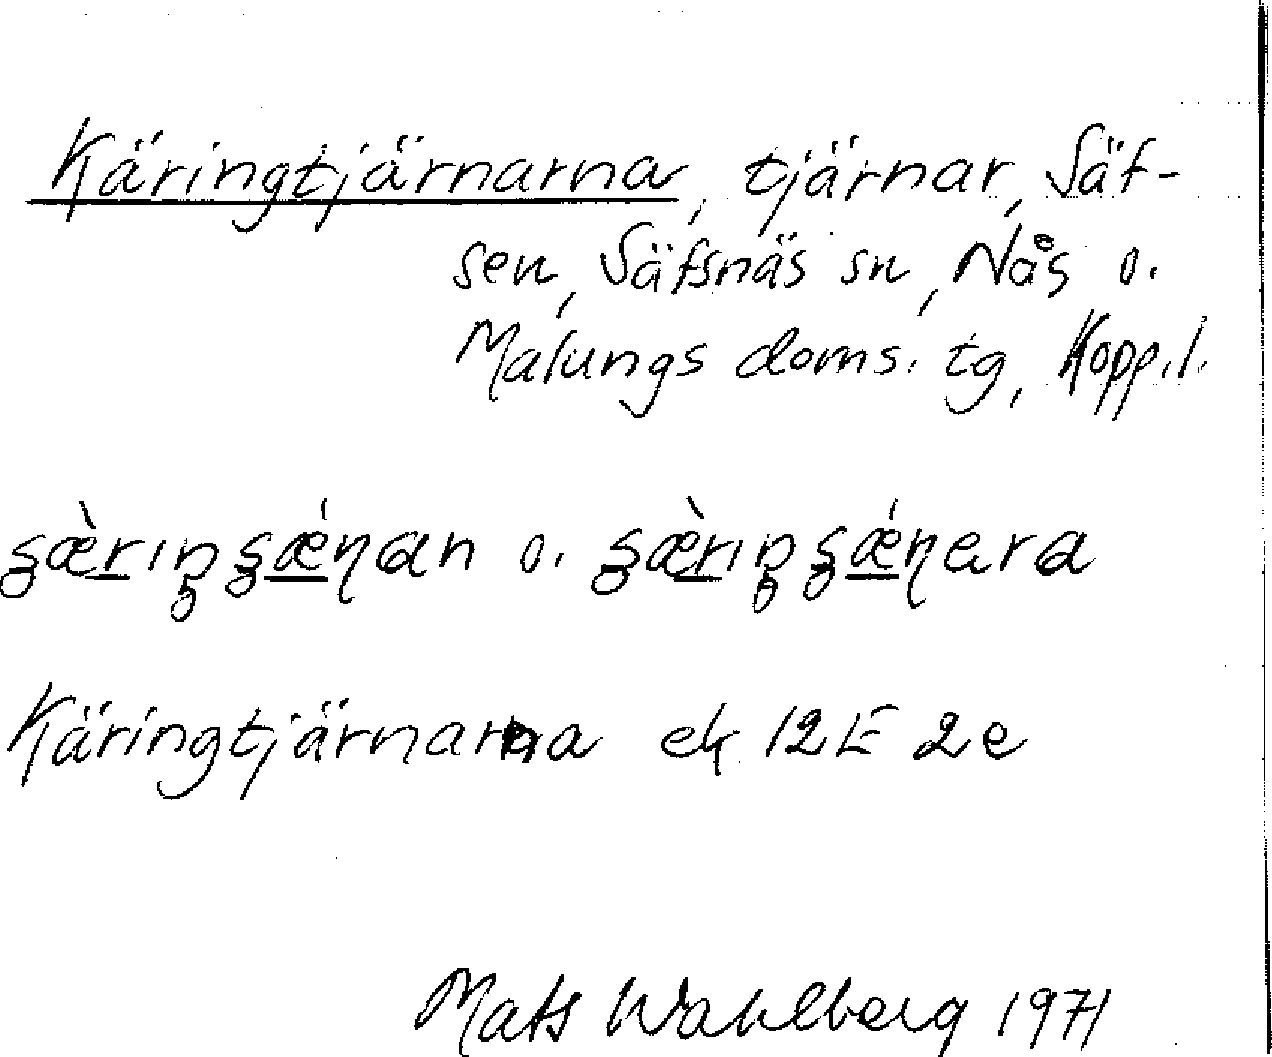 Käringtjärnarna, tjärnar, Säf-
sen, Säfsnäs sn, Nås o.
Malungs doms. tg, Kopp. l.
o.
Käringtjärnarna ek 12E 2e
Mats Wahlberg 1971